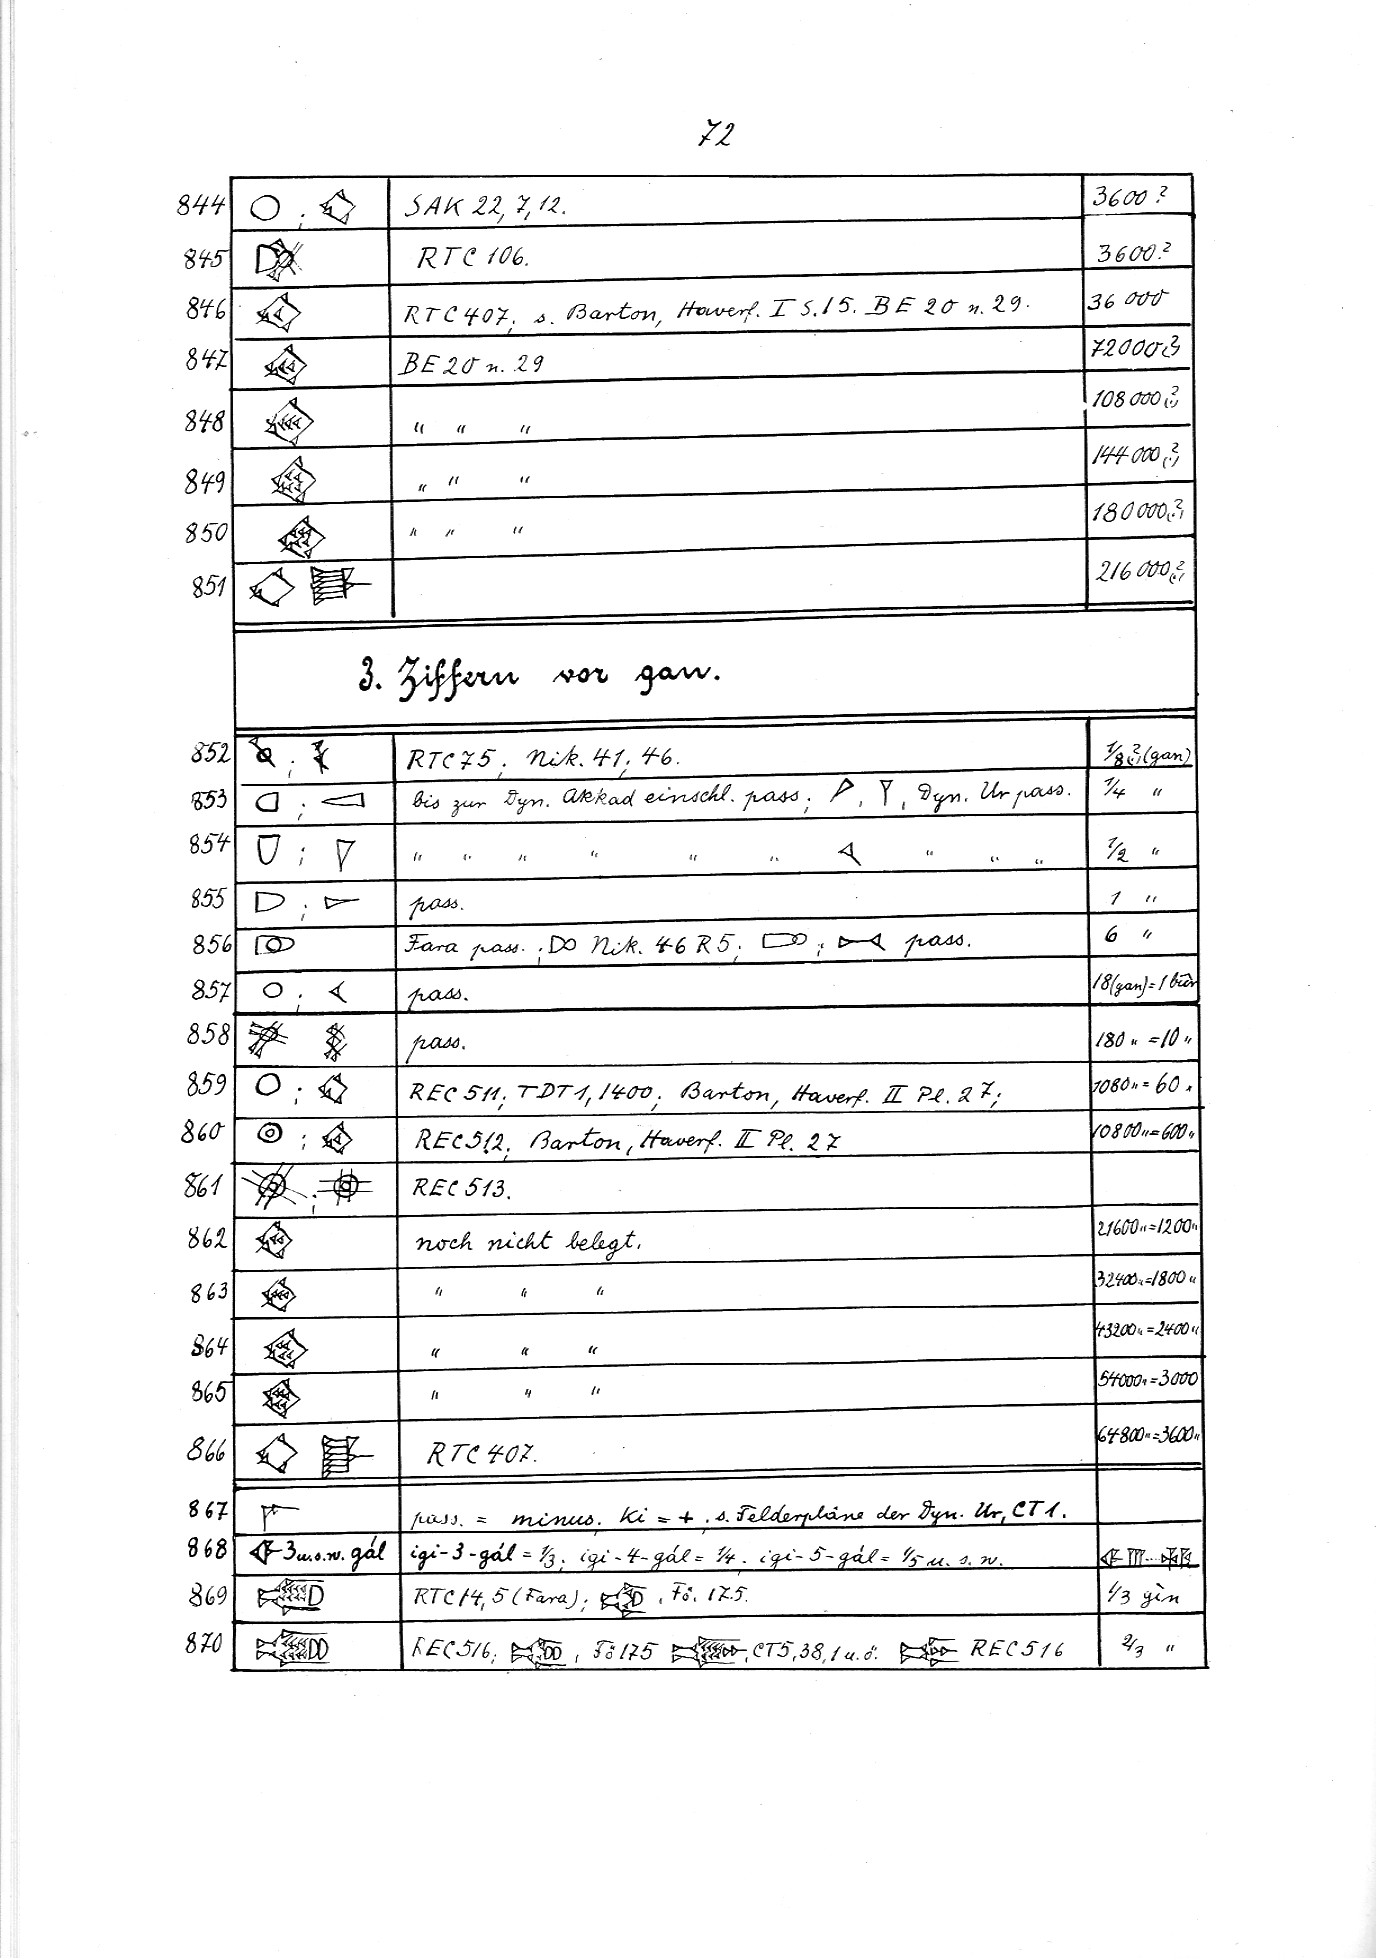 72
844 SAK 22,7,12. 3600?
845 RTC 106. 3600?
846 RTC 407; s. Barton, Haverf. I S.15. BE 20 n. 29. 36 000
847 BE 20 n. 29 72000(?)
848 " " " 108 000(?)
849 " " " 144 000(?)
850 " " " 180 000(?)
851 216 000(?)
3. Ziffern vor gan.
852 RTC 75; Nik. 41; 46. 1/8(?)(gan)
853 bis zur Dyn. Akkad einschl. pass; Dyn. Ur pass. 1/4 "
854 " " " " " " " " " 1/2 "
855 pass. 1 "
856 Fara pass.; Nik. 46 R 5; pass. 6 "
857 pass. 18(gan)=1 bùr
858 pass. 180 " =10 "
859 REC 511; TDT 1, 1400; Barton, Haverf. II Pl. 27; 1080 " = 60 "
860 REC 512; Barton, Haverf. II Pl. 27 10800 " =600 "
861 REC 513.
862 noch nicht belegt. 21600 " =1200 "
863 " " " 32400 " =1800 "
864 " " " 43200 " =2400 "
865 " " " 54000 " =3000
866 RTC 407. 64800 " =3600 "
867 pass. = minus; Ki = +, s. Felderpläne der Dyn. Ur, CT 1.
868 3 u.s.w. gál igi-3-gál = 1/3; igi-4-gál = 1/4. igi-5-gál = 1/5 u. s. w.
869 RTC 14,5 (Fara); Fö. 175. 1/3 gín
870 REC 516; Fö 175 CT 5,38,1 u. ö. REC 516 2/3 "